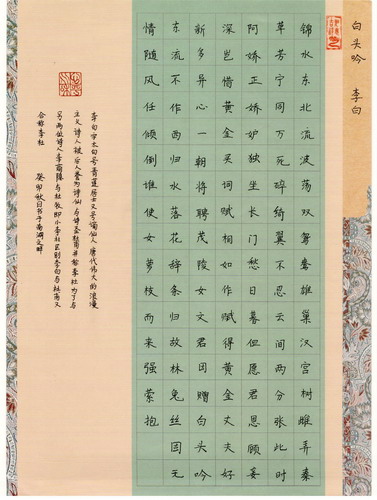 白头吟 李白
锦水东北流波荡双鸳鸯雄巢汉宫树雌弄秦
草芳宁同万死碎绮翼不忍云间两分张此时
阿娇正娇妒独坐长门愁日暮但愿君恩顾妾
深岂惜黄金买词赋相如作赋得黄金丈夫好
新多异心一朝将聘茂陵女文君因赠白头吟
东流不作西归水落花辞条归故林兔丝固无
情随风任倾倒谁使女萝枝而来强萦抱
李白字太白号青莲居士又号谪仙人唐代伟大的浪漫
主义诗人被后人誉为诗仙与诗圣杜甫并称李杜为了与
另两位诗人李商隐与杜牧即小李杜区别李白与杜甫又
合称李杜
癸卯秋日书于南湖之畔